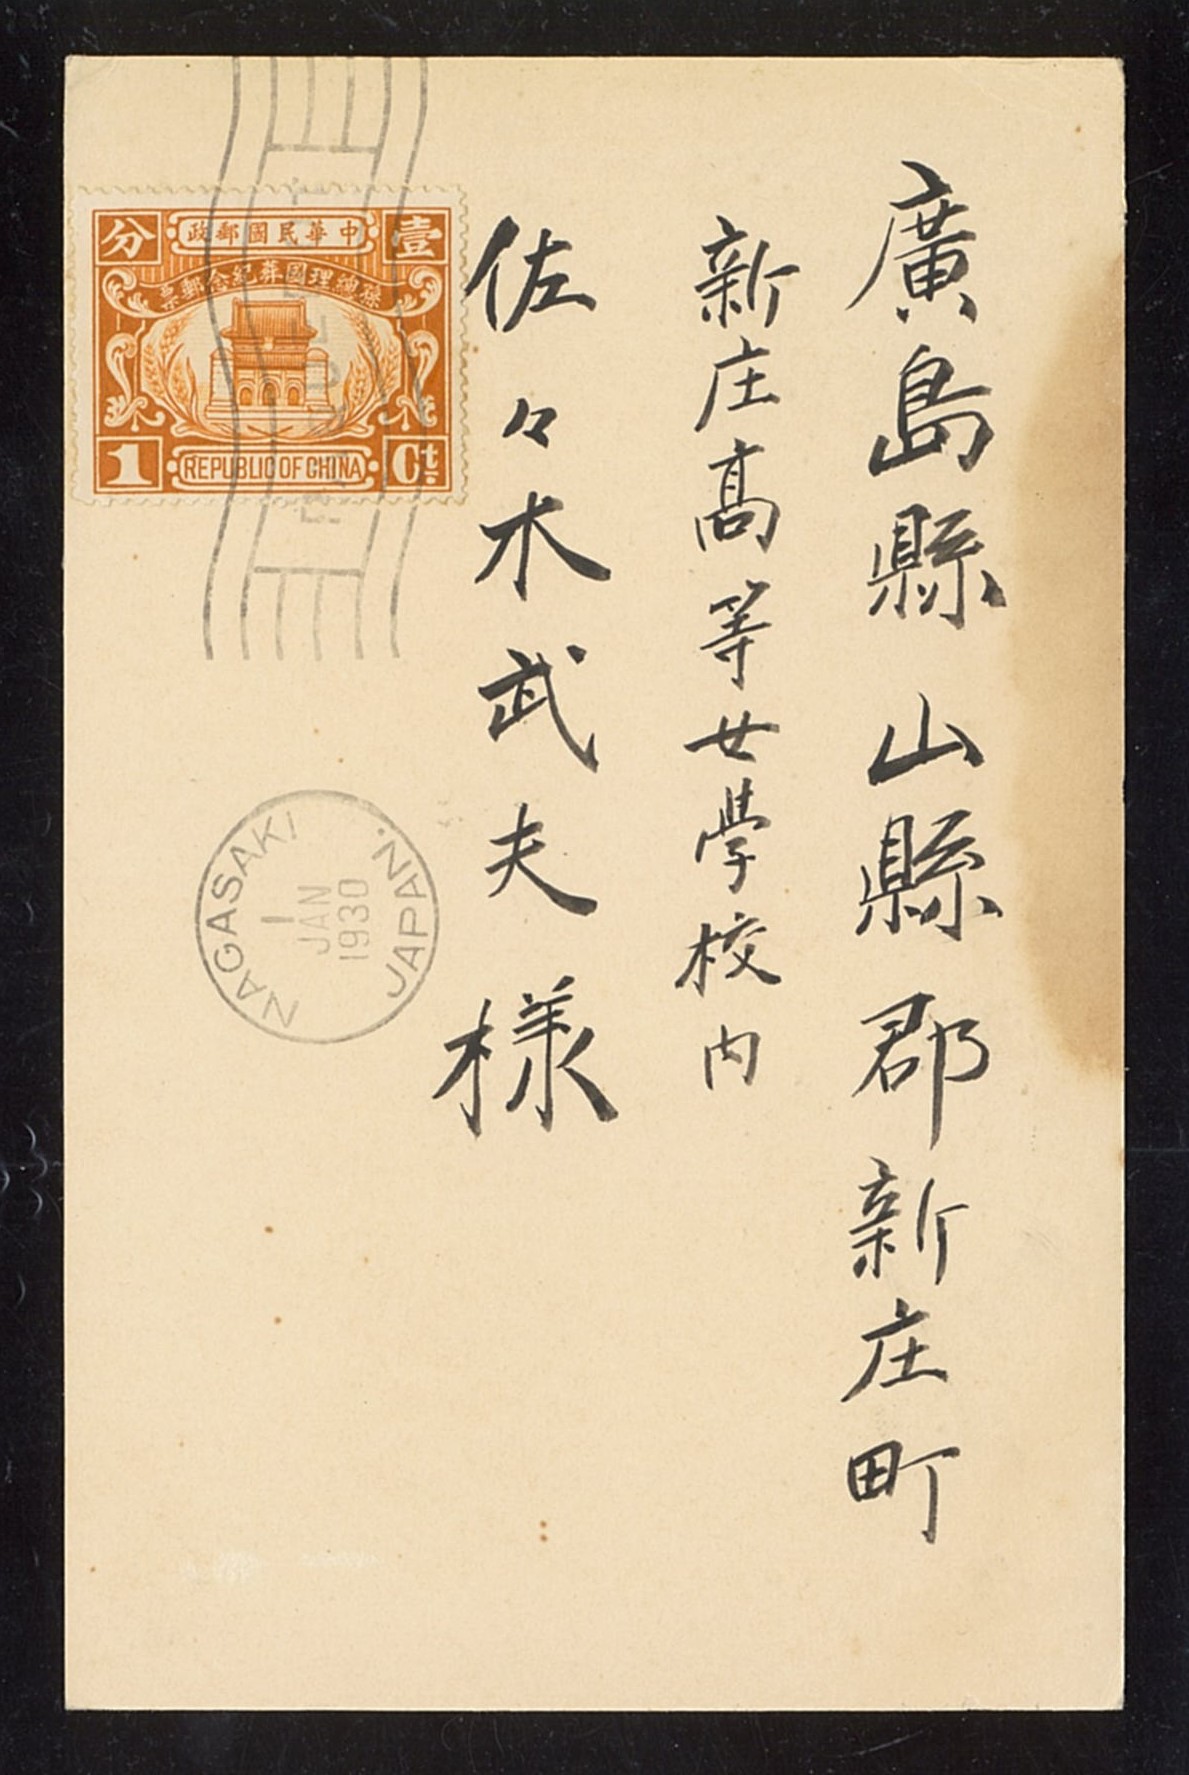 廣島縣山縣郡新庄町
新庄高等女學校内
佐々木武夫様
分
中華民國郵政
壹
孫總理國葬紀念郵票
1
REPUBLIC OF CHINA
Ct.
NAGASAKI
1
JAN
1930
JAPAN.